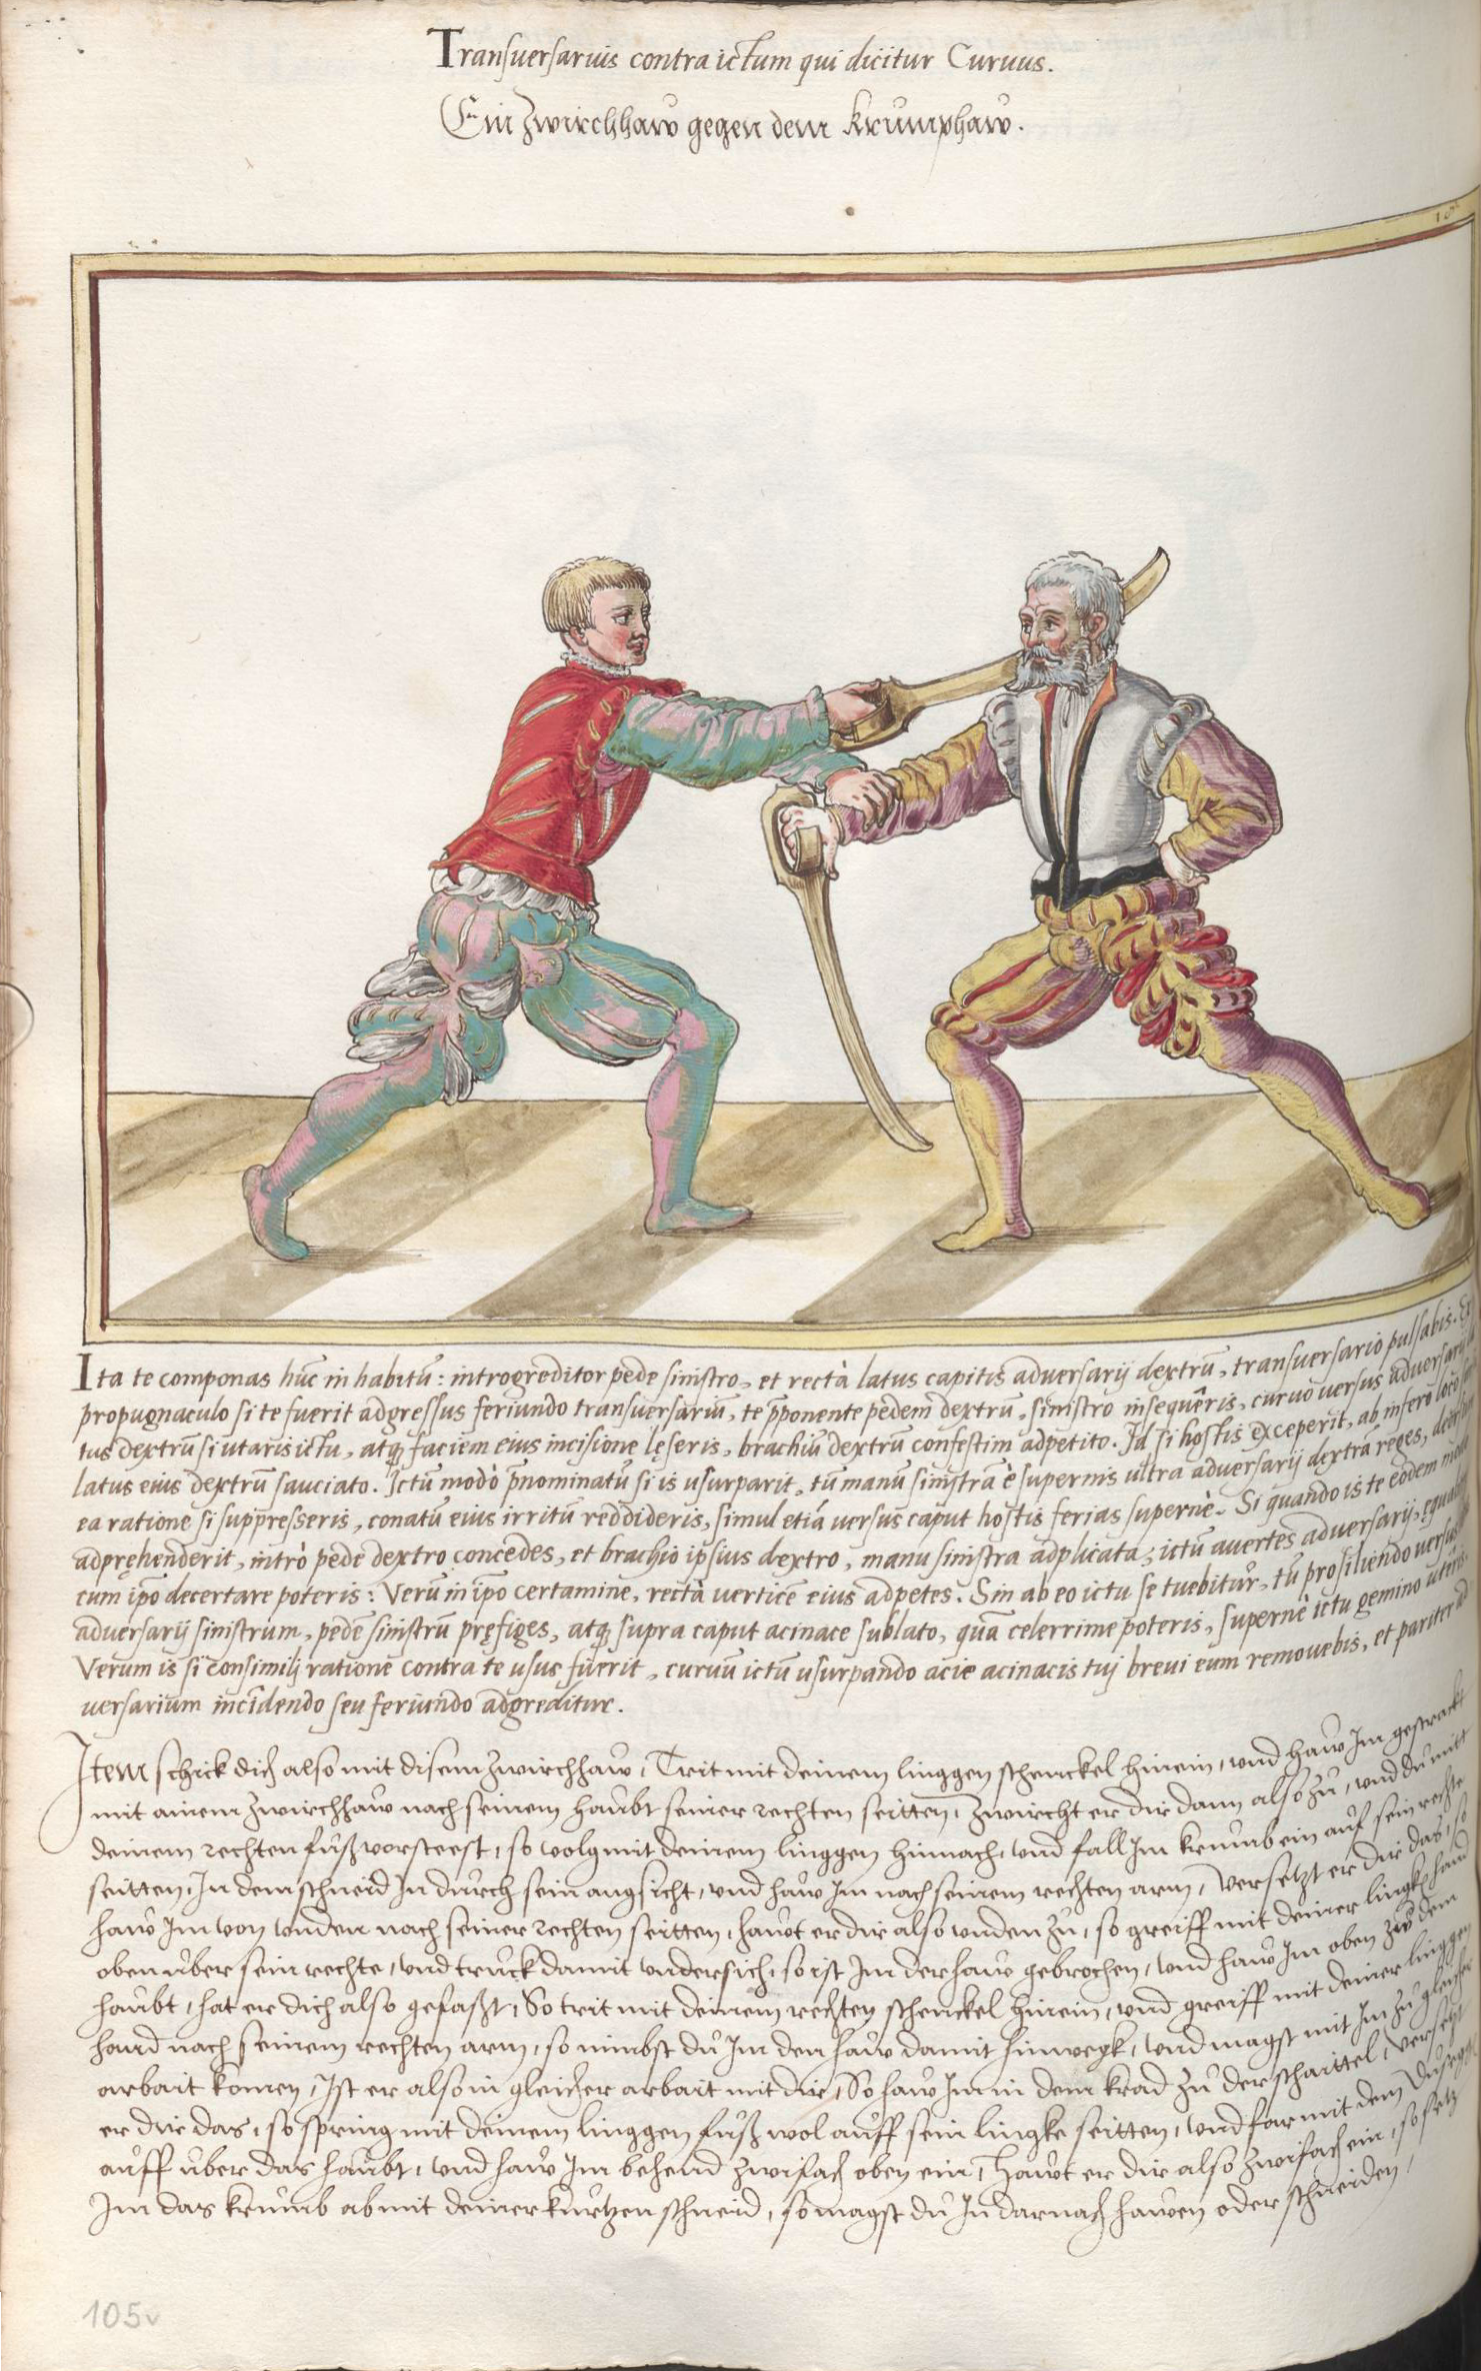 Transuersarius contra ictum qui dicitur Curuus.
Ein Zwirchhaw gegen dem Krumphaw.
Ita te componas hūc in habitū: introgreditor pede sinistro, et rectà latus capitis adversarij dextrū, transuersario pulsabis.
propugnaculo si te fuerit adgressus feriundo transuersariū, te p̄ponente pedem dextrū, sinistro insequeris, curuo versus adversarij
tus dextrū si utaris ictu, atq; faciem eius incisione lęseris, brachiū dextrū confestim adpetito. Id si hostis exceperit, ab infero loco
latus eius dextrū sauciato. Ictū modò p̄nominatū si is usurparit, tū manū sinistrā è supernis ultra adversarij dextrā reges,
ea ratione si suppresseris, conatū eius irritū reddideris, simul etiā versus caput hostis ferias supernè. Si quando is te eodem
adpręhenderit, intrò pede dextro concedes, et brachio ipsius dextro, manu sinistra adplicata, ictū auertes adversarij,
cum ip̄o decertare poteris: Verū in ip̄o certamine, rectà verticē eius adpetes. Sin ab eo ictu se tuebitur, tū prosiliendo versus
adversarij sinistrum, pedē sinistrū pręfiges, atq; supra caput acinace sublato, quā celerrime poteris, supernè ictu gemino uteris.
Verum is si consimilj ratione contra te usus fuerit, curuū ictū usurpando acie acinacis tuj brevi eum removebis, et pariter
versarium incidendo seu feriundo adgreditur.
Item schick dich also mit disem Zwirchhaw, Trit mit deinem linggen schenckel hinein, vnd haw Im gestrackt
mit ainem Zwirchhaw nach seinem haubt seiner rechten seitten, Zwircht er dir dann also zu, vnd du mitt
deinem rechten fuß vorsteest, so volg mit deinem linggen hinnach, vnd fall Im krumb ein auf sein rechte
seitten, In dem schneid In durch sein angsicht, vnd haw Im nach seinem rechten arm, Versetzt er dir das, so
haw Im von vnden nach seiner rechten seitten, hawt er dir also vnden zu, so greiff mit deiner lingk hand
oben uber sein rechte, vnd truck damit vndersich, so ist Im der haw gebrochen, vnd haw Im oben zu dem
haubt, hat er dich also gefaßt, So trit mit deinem rechten schenckel hinein, vnd greiff mit deiner linggen
hand nach seinem rechten arm, so nimbst du Im den haw damit hinwegk, vnd magst mit Im zu gleicher
arbait komen, Ist er also in gleicher arbait mit dir, So haw Im in dem krad zu der schaittel, versetzt
er dir das, so spring mit deinem linggen fuß wol auff sein lingke seitten, vnd far mit dem Dusegg
auff uber das haubt, vnd haw Im behend zwifach oben ein, Hawt er dir also zwifach ein, so setz
Im das krumb ab mit deiner kurtzen schneid, so magst du In darnach hawen oder schneiden,
105v